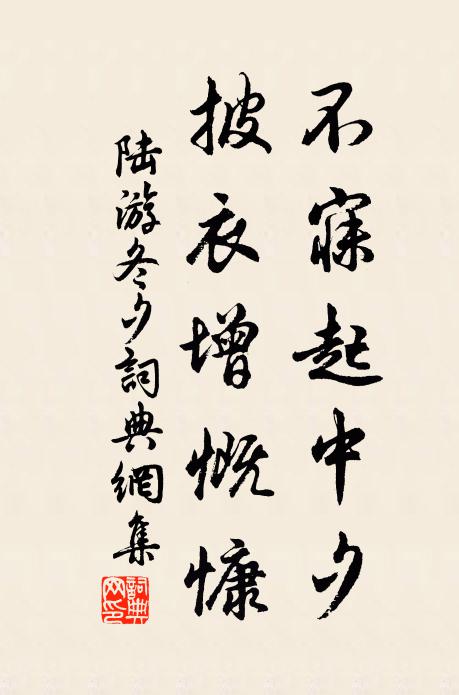 不寐起中夕
披衣增慨慷
陆游冬夕詞典網集
詞典网印